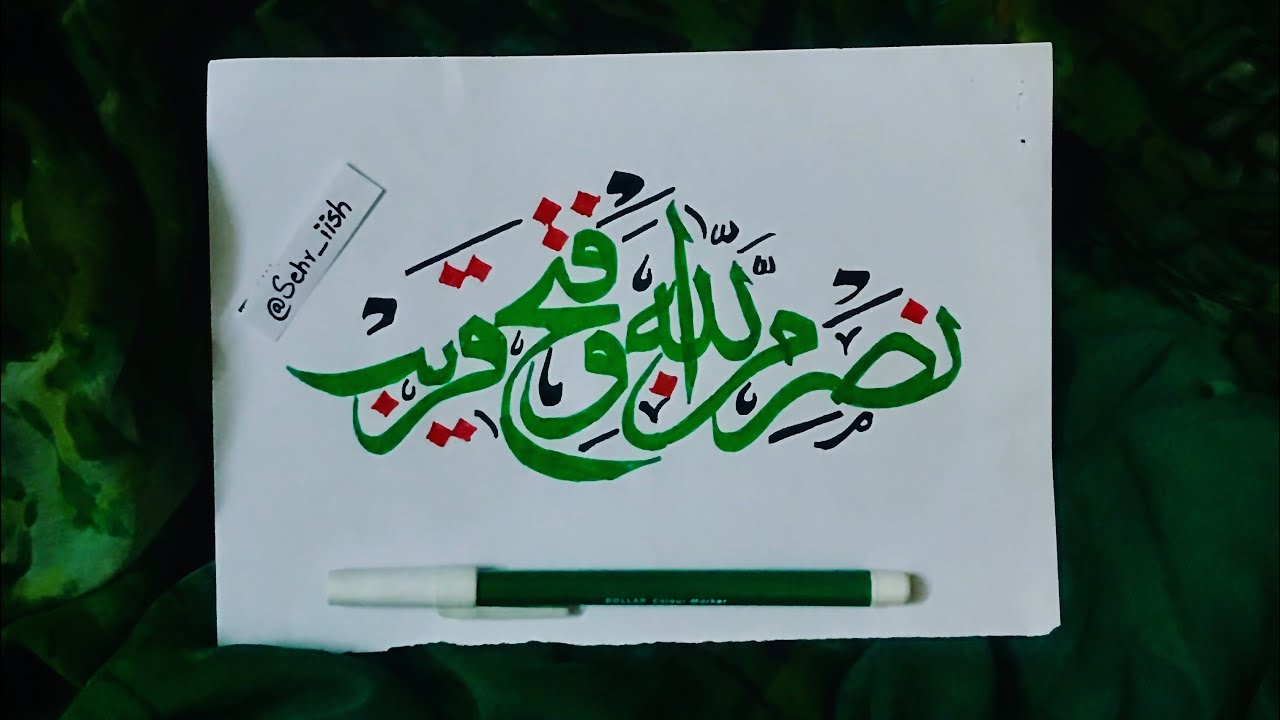 نصر من الله وفتح قريب
@Sehr_iish
DOLLAR Colour Marker